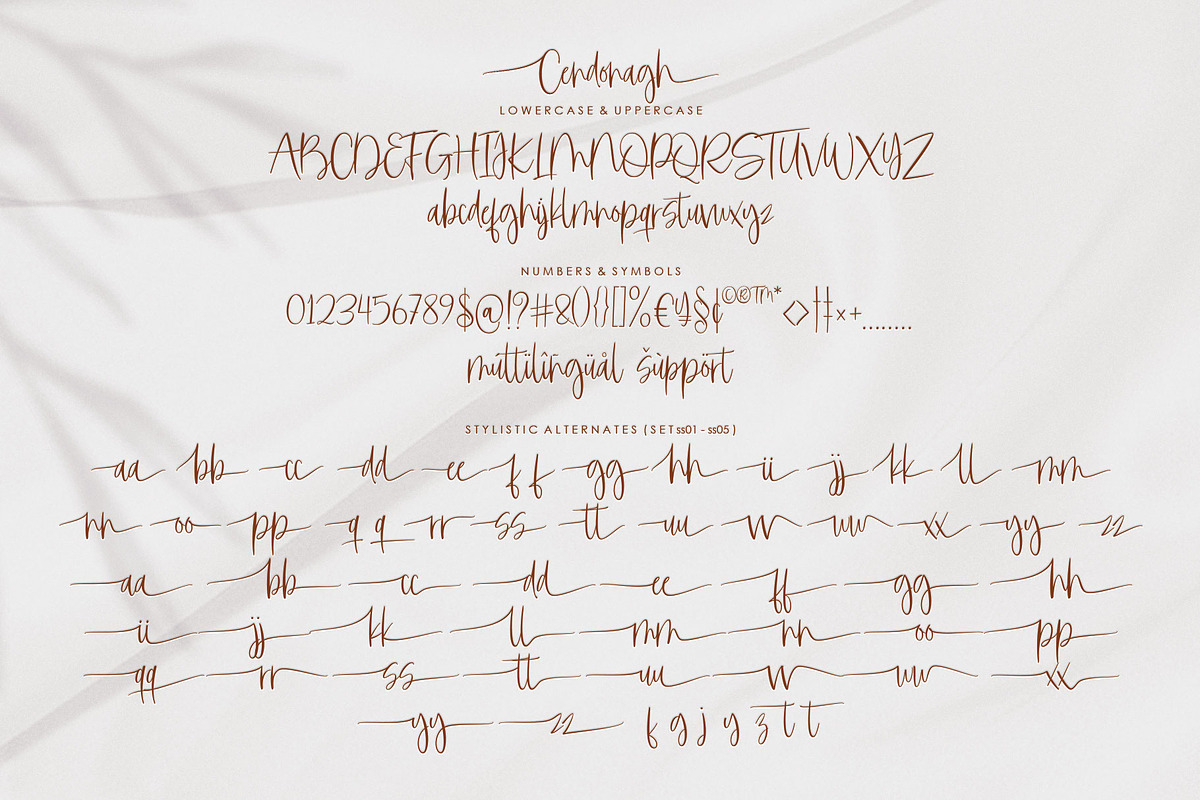 Cendonagh
LOWERCASE & UPPERCASE
ABCDEFGHIJKLMNOPQRSTUVWXYZ
abcdefghijklmnopqrstuvwxyz
NUMBERS & SYMBOLS
0123456789$@!?#&(){}[]%€¥§¢©®™*◇†‡x+........
múttïlîñgüål šùppört
STYLISTIC ALTERNATES (SET ss01 - ss05)
aa bb cc dd ee ff gg hh ii jj kk ll mm
nn oo pp qq rr ss tt uu vv ww xx yy zz
aa bb cc dd ee ff gg hh
ii jj kk ll mm nn oo pp
qq rr ss tt uu vv ww xx
yy zz f g j y z t t